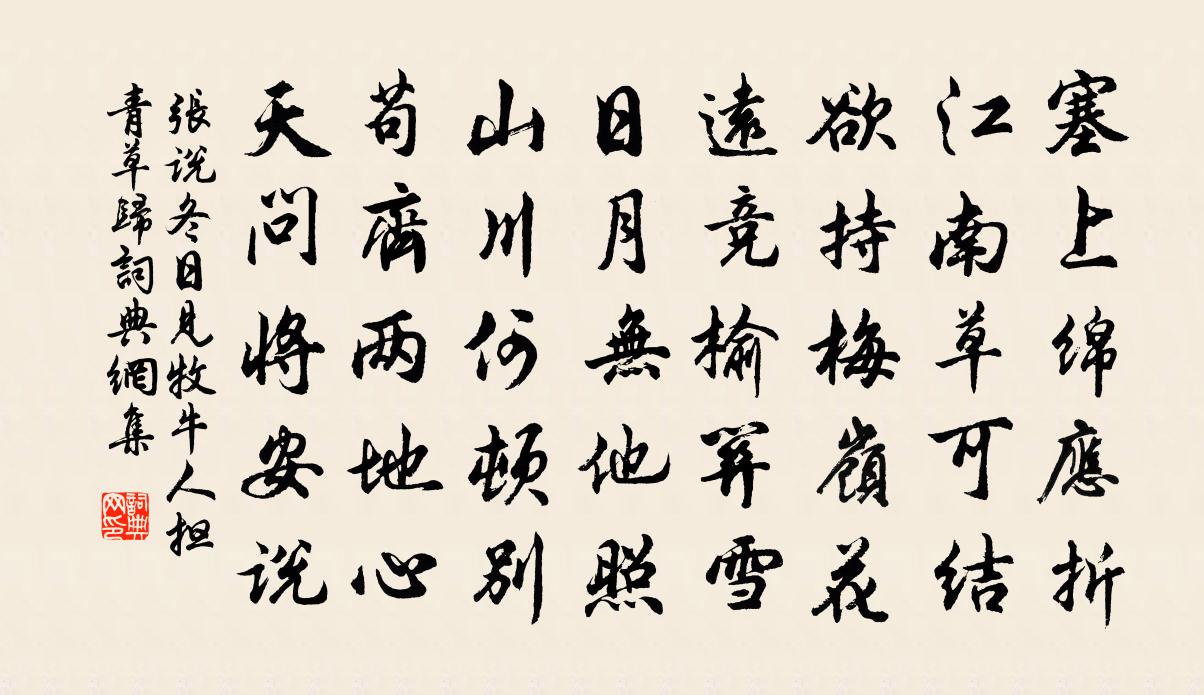 塞上绵應折
江南草可结
欲持梅嶺花
遠竞榆關雪
日月無他照
山川何頓别
苟齊两地心
天問将安説
張説冬日見牧牛人担
青草歸詞典網集
詞典网印